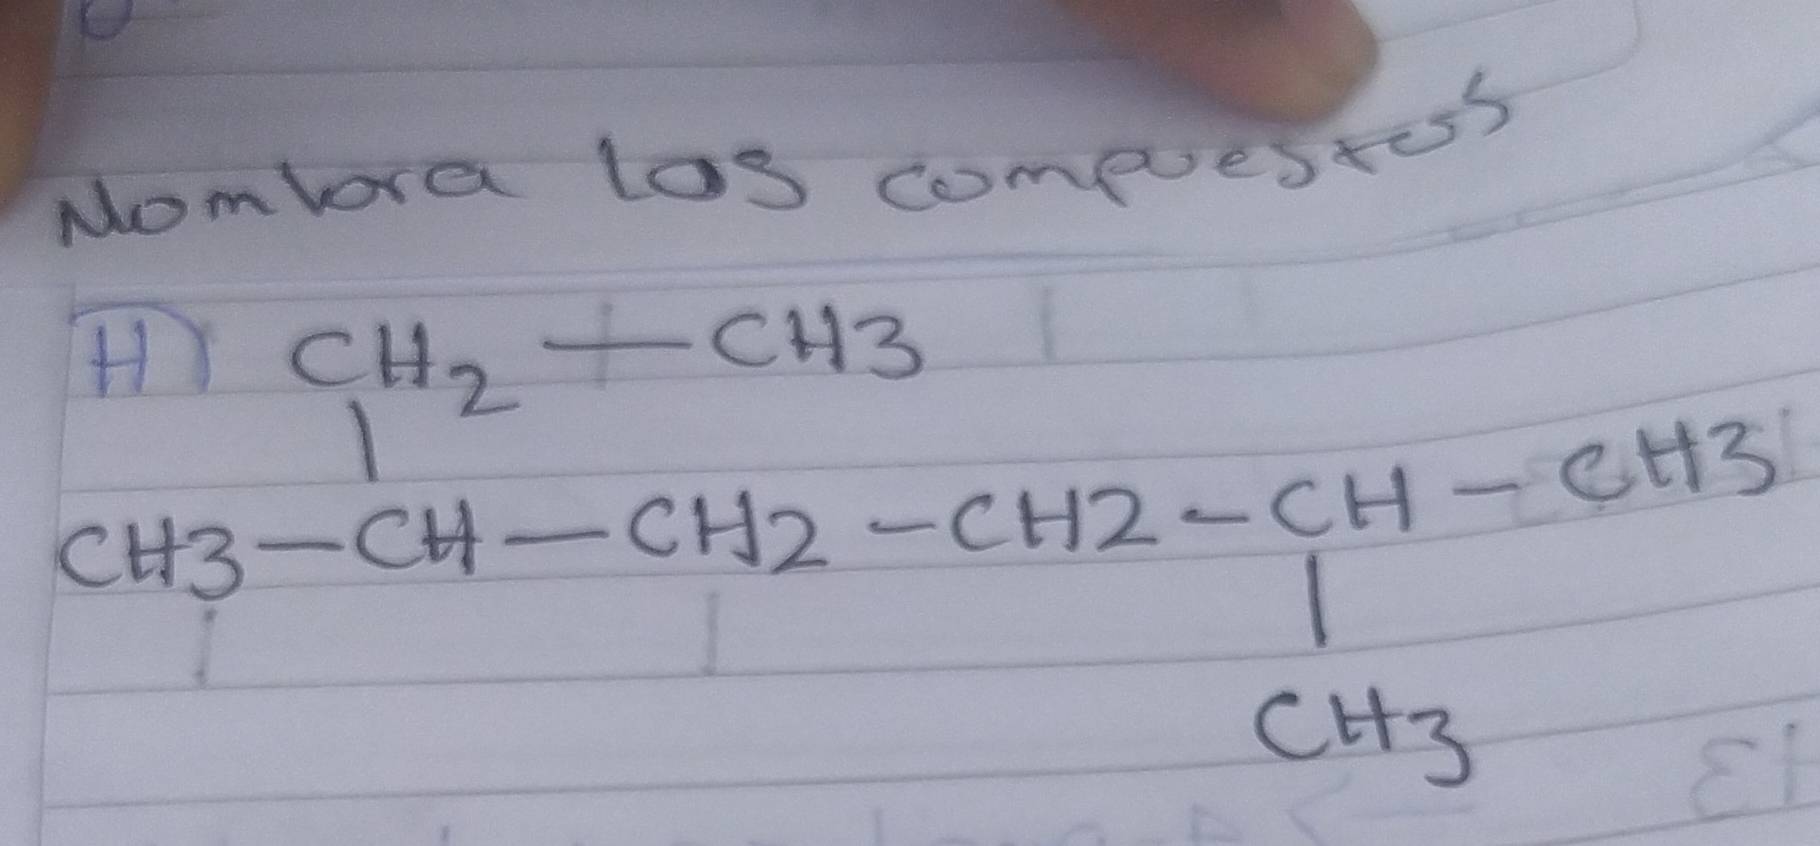 Nombra los compuestos
H) CH2 — CH3
|
CH3 — CH — CH2 — CH2 — CH — CH3
|
CH3